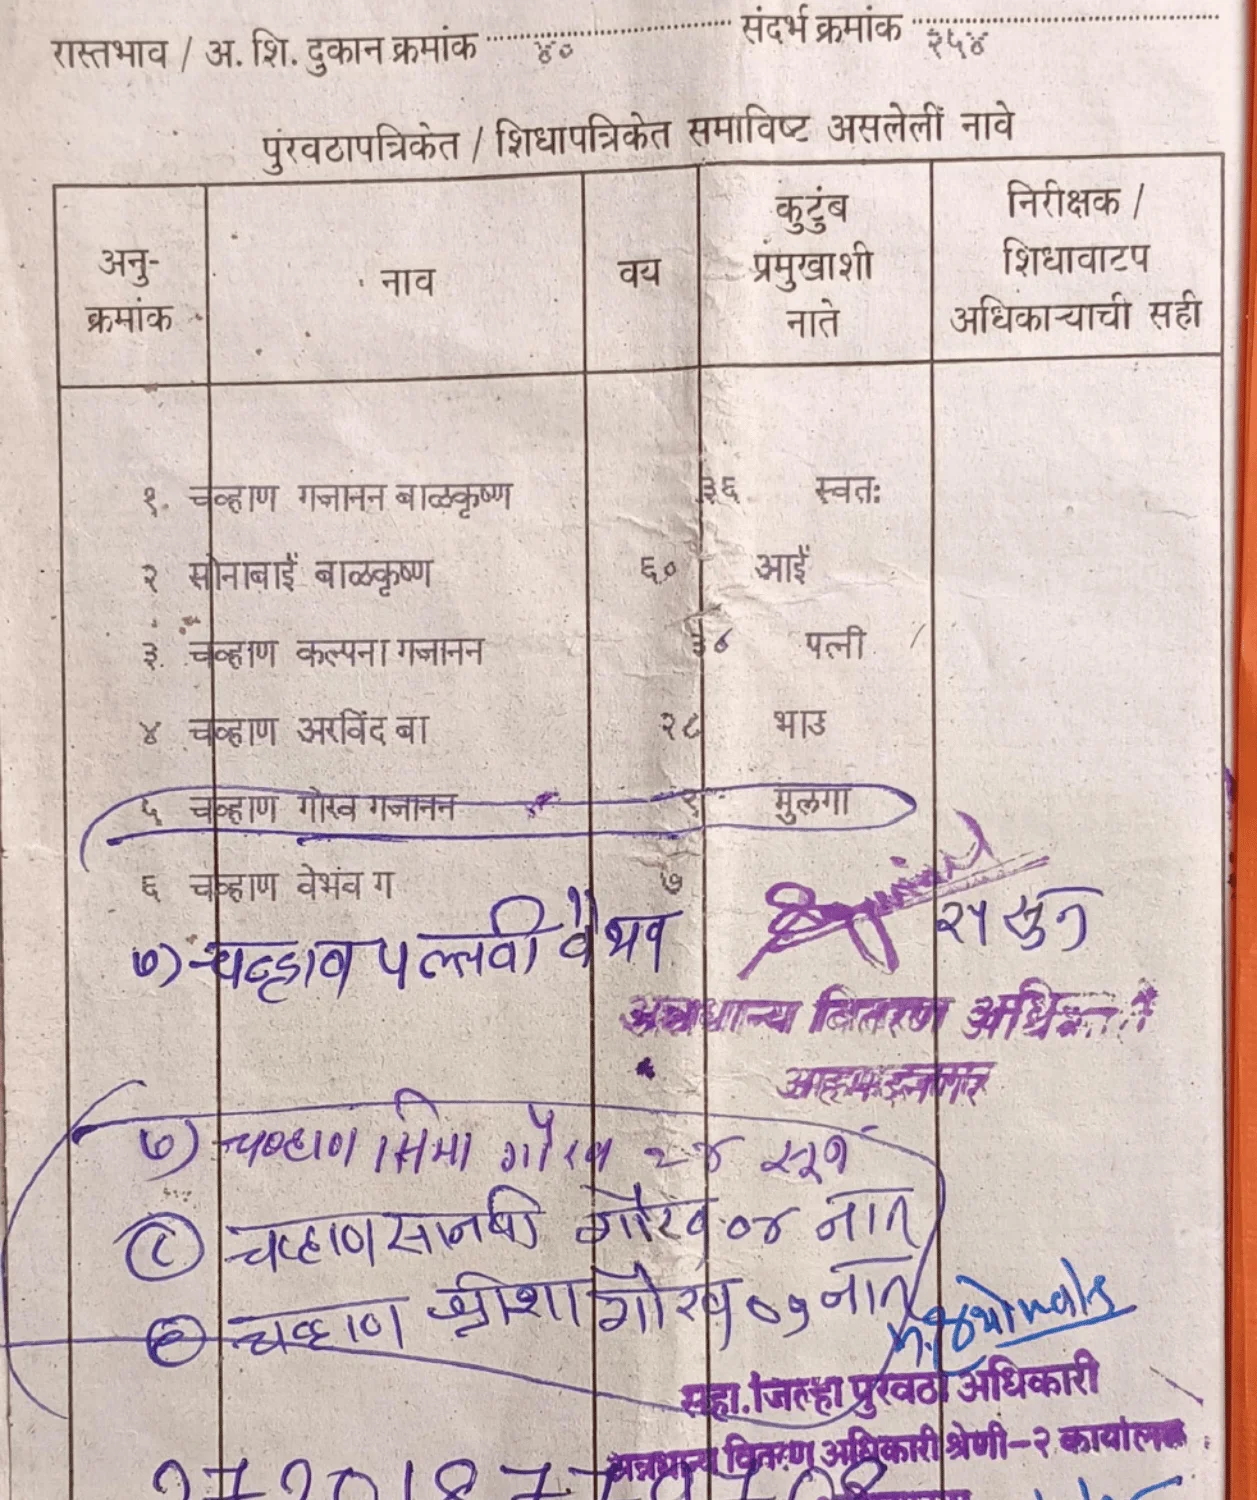 रास्तभाव / अ. शि. दुकान क्रमांक ४० संदर्भ क्रमांक २५४
पुरवठापत्रिकेत / शिधापत्रिकेत समाविष्ट असलेलीं नावे
अनु-क्रमांक नाव वय कुटुंब प्रमुखाशी नाते निरीक्षक / शिधावाटप अधिकाऱ्याची सही
१. चव्हाण गजानन बाळकृष्ण ३६ स्वतः
२ सोनाबाई बाळकृष्ण ६० आई
३. चव्हाण कल्पना गजानन पत्नी
४ चव्हाण अरविंद बा २८ भाउ
५ चव्हाण गोरव गजानन मुलगा
६ चव्हाण वेभव ग ७
७) चव्हाण पल्लवी वैभव सुन
अन्नधान्य वितरण
७) चव्हाण गौरव २४ सून
८ चव्हाण सानवी गौरव ०४ नात
९ चव्हाण श्रीशा गौरव नात
सहा. जिल्हा पुरवठा अधिकारी
अन्नधान्य वितरण अधिकारी श्रेणी-२ कार्यालय